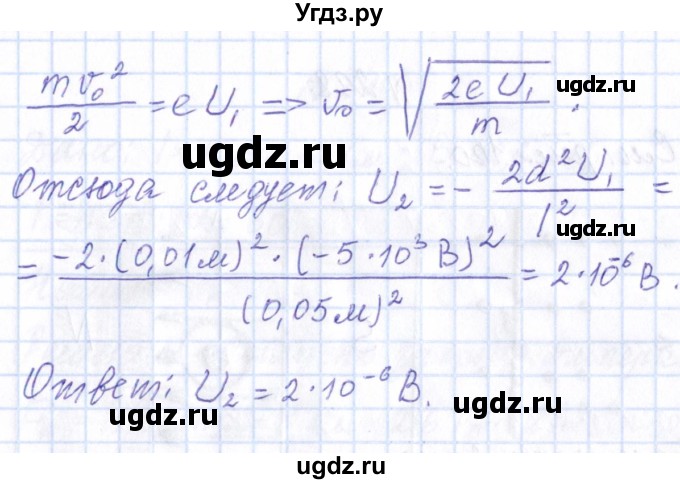 Угдз.ру
mv₀²/2 = eU₁ => v₀ = √(2eU₁/m) .
ugdz.ru
ugdz.ru
ugdz.ru
Отсюда следует: U₂ = - 2d²U₁/l² =
= -2·(0,01м)²·(-5·10³ В)²/(0,05м)² = 2·10⁻⁶ В.
ugdz.ru
ugdz.ru
Ответ: U₂ = 2·10⁻⁶ В.
ugdz.ru
ugdz.ru
ugdz.ru